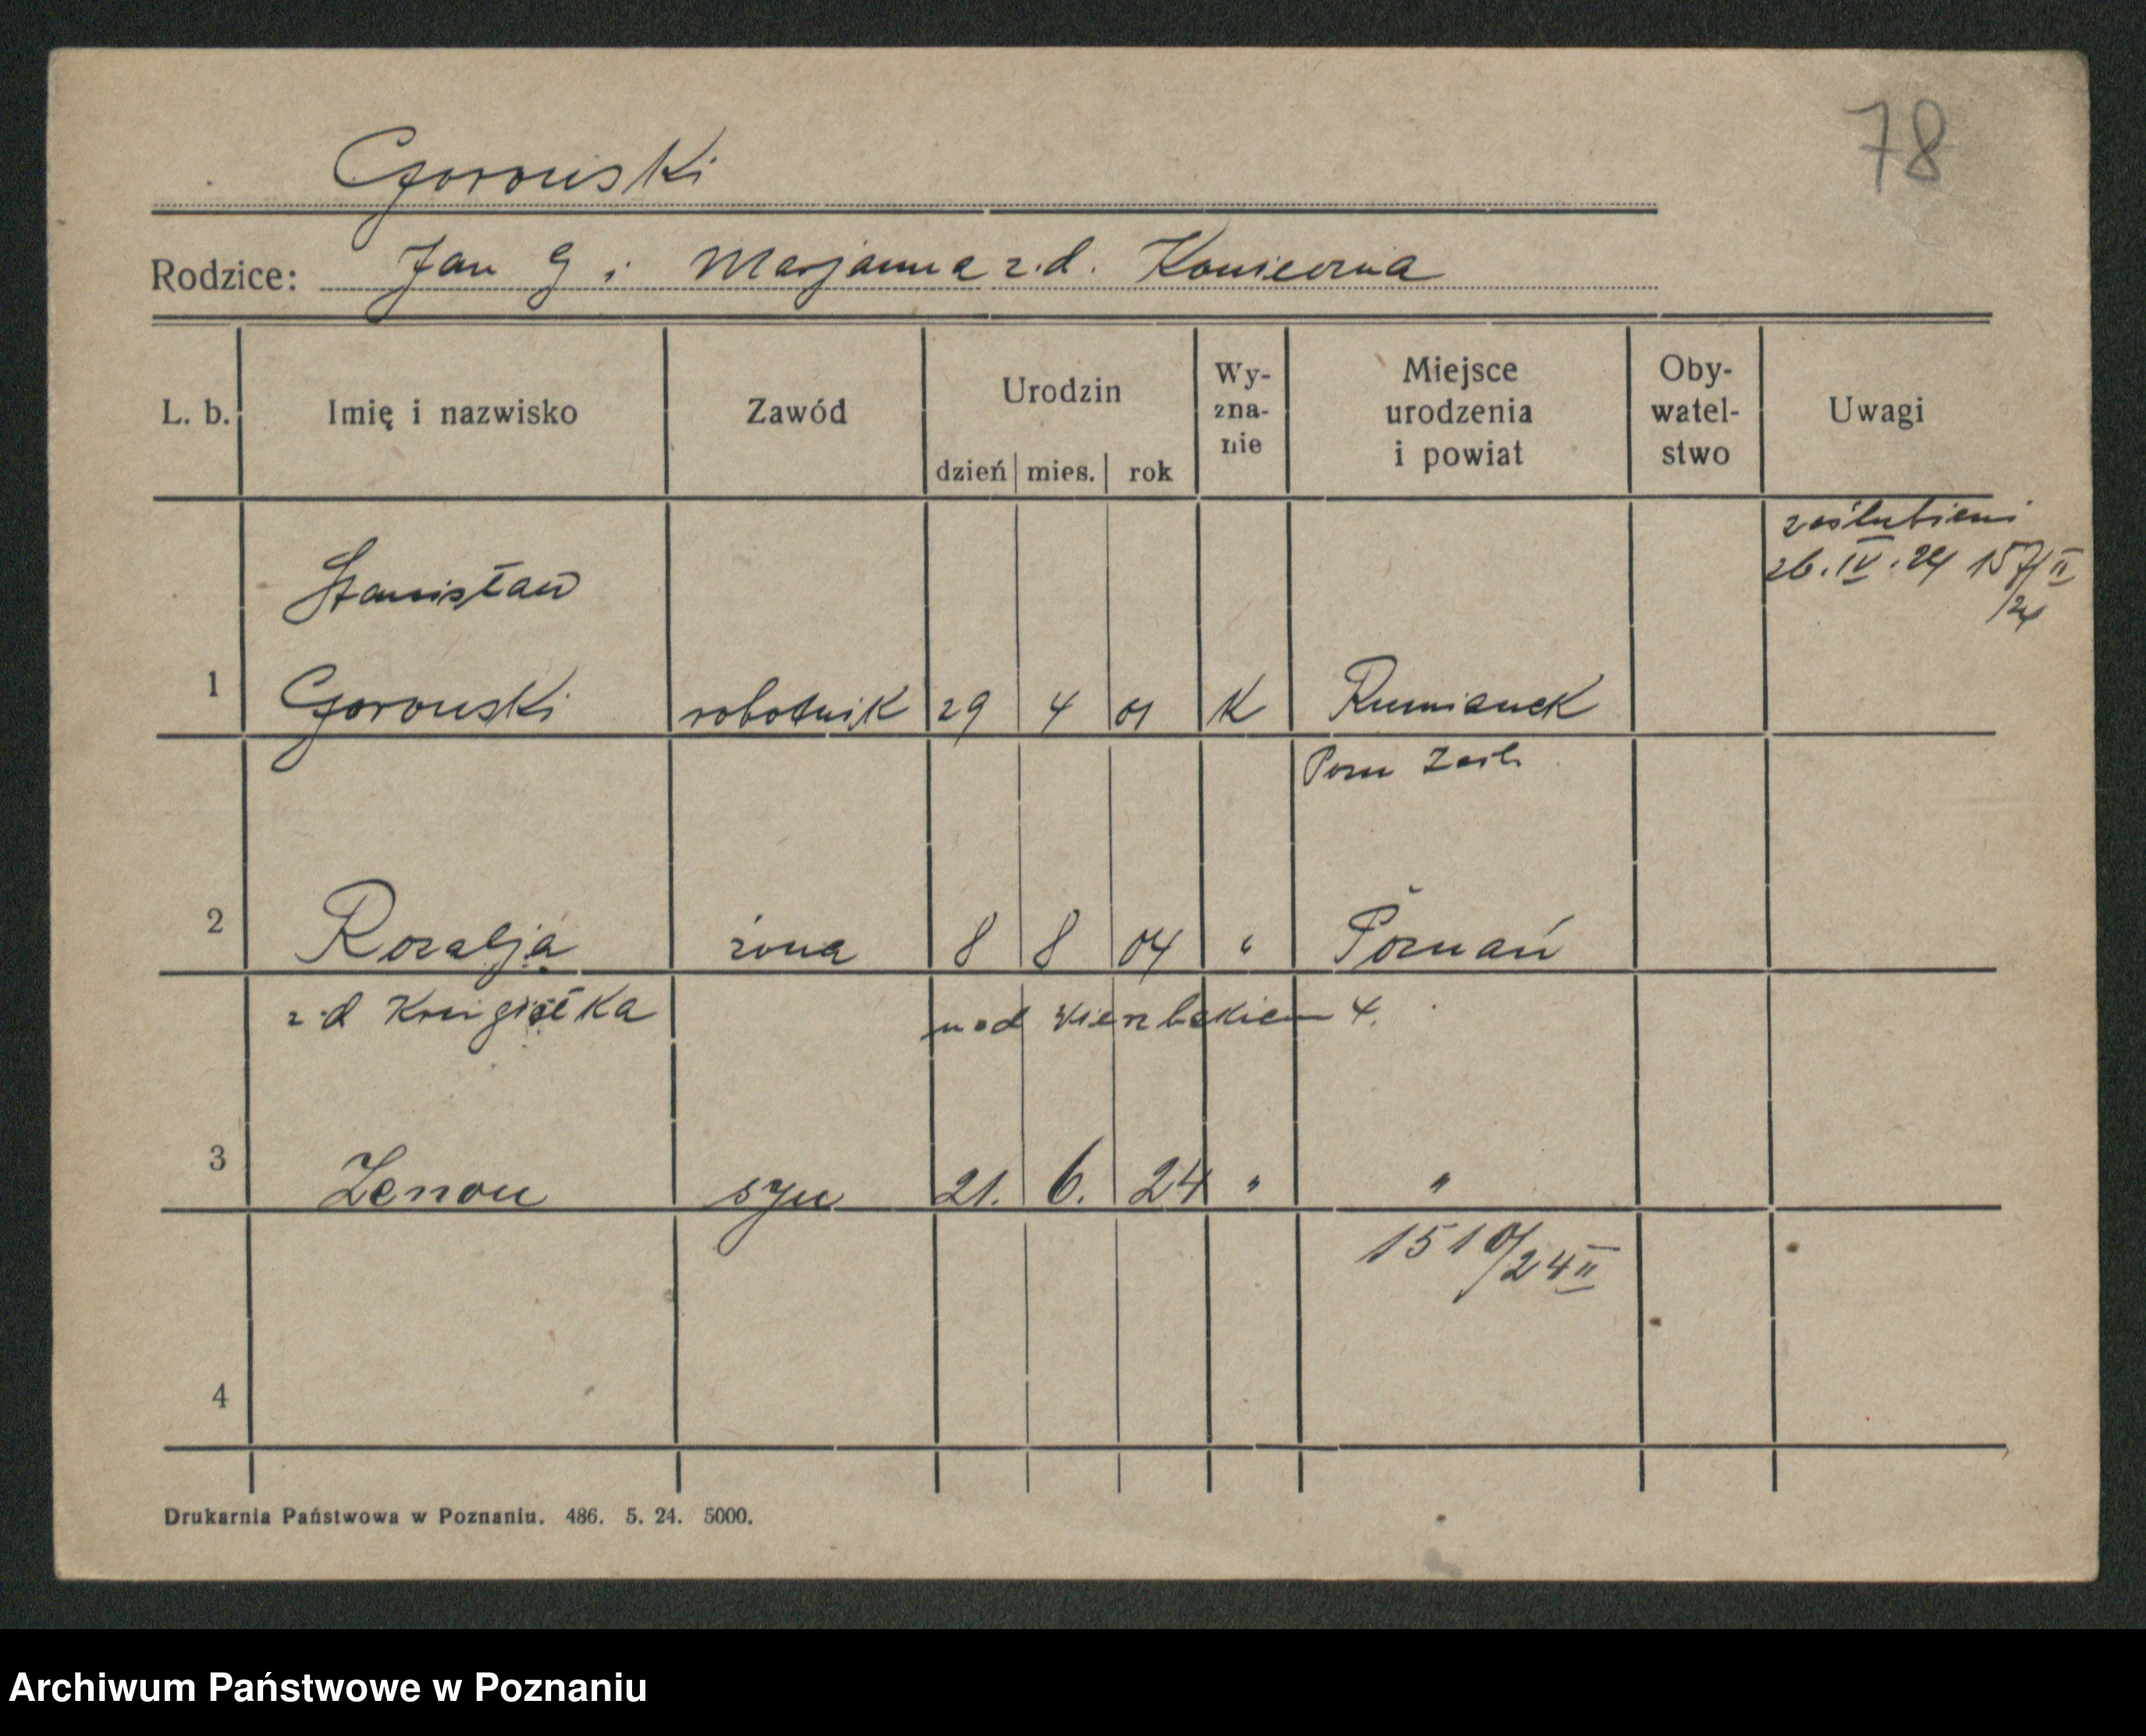 78
Gorowski
Rodzice: Jan G i Marjanna z.d. Konieczna
L. b. Imię i nazwisko Zawód Urodzin dzień mies. rok Wy-zna-nie Miejsce urodzenia i powiat Oby-watel-stwo Uwagi
zaślubieni
26. IV. 24 157/II
/24
Stanisław
1 Gorowski robotnik 29 4 01 K Rumianek
Pozn Zach
2 Rozalja żona 8 8 04 " Poznań
z d nad Wierzbakiem 4.
3 Zenon syn 21. 6. 24 " "
1510/24 II
4
Drukarnia Państwowa w Poznaniu. 486. 5. 24. 5000.
Archiwum Państwowe w Poznaniu